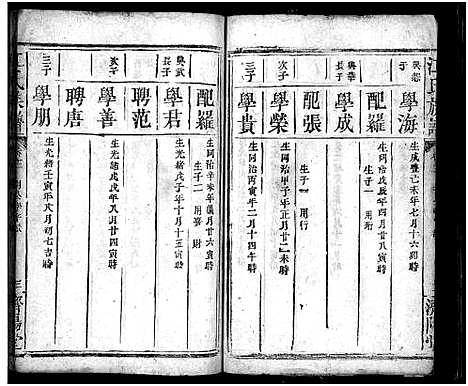 學海
生咸豐己未年七月十六卯時
配羅
生同治戊辰年四月廿八寅時
生子一 用行
興華長子
學成
配張
生子一 用行
次子
學榮
生同治甲子年正月廿二未時
三子
學貴
生同治丙寅年二月十四午時
配羅
生同治辛未年八月廿六寅時
生子二 用財
興武長子
學君
生光緒戊子年十月十五寅時
聘范
次子
學善
生光緒戊戌年八月廿四寅時
聘唐
三子
學朋
生光緒壬寅年八月初七吉時